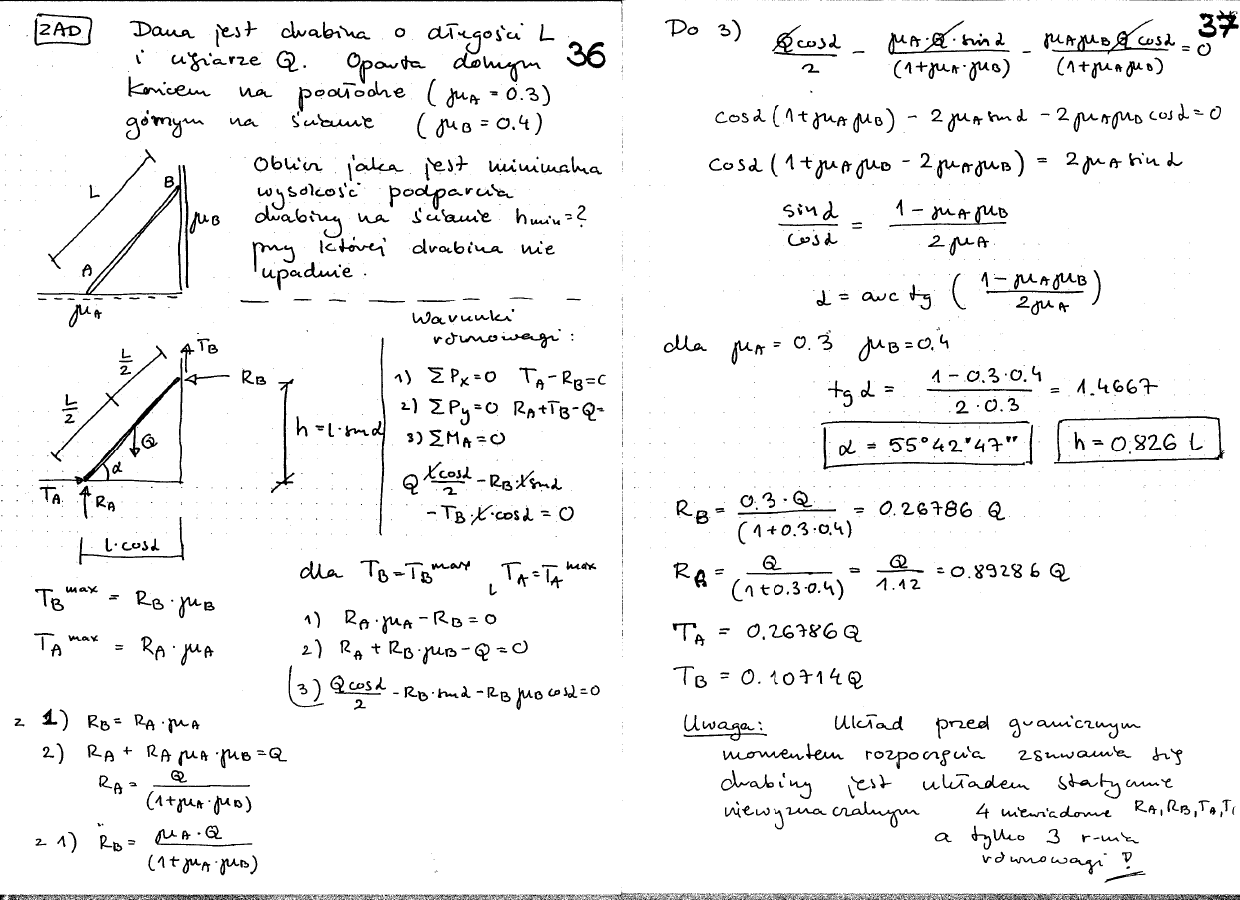 ZAD Dana jest drabina o długości L
i ciężarze Q. Oparta dolnym 36
końcem na podłodze (μA = 0.3)
górnym na ścianie (μB = 0.4)
Oblicz jaka jest minimalna
wysokość podparcia
drabiny na ścianie hmin = ?
przy której drabina nie
upadnie.
L
B
μB
A
μA
Warunki
równowagi:
TB
L/2
L/2
RB
Q
α
h = l·sinα
TA
RA
l·cosα
1) ΣPx=0 TA-RB=0
2) ΣPy=0 RA+TB-Q=
3) ΣMA=0
Q lcosα/2 - RB·lsinα
- TB·l·cosα = 0
TB^max = RB·μB
TA^max = RA·μA
dla TB=TB^max i TA=TA^max
1) RA·μA - RB = 0
2) RA + RB·μB - Q = 0
3) Qcosα/2 - RB·sinα - RB μB cosα = 0
z 1) RB = RA·μA
2) RA + RA μA·μB = Q
RA = Q/(1+μA·μB)
z 1) RB = μA·Q/(1+μA·μB)
37
Do 3) Qcosα/2 - μA·Q·sinα/(1+μA·μB) - μAμBQcosα/(1+μAμB) = 0
cosα(1+μAμB) - 2μAsinα - 2μAμBcosα = 0
cosα(1+μAμB - 2μAμB) = 2μA sinα
sinα/cosα = 1-μAμB/2μA
α = arc tg (1-μAμB/2μA)
dla μA = 0.3 μB = 0.4
tgα = 1-0.3·0.4/2·0.3 = 1.4667
α = 55°42'47"
h = 0.826 L
RB = 0.3·Q/(1+0.3·0.4) = 0.26786 Q
RA = Q/(1+0.3·0.4) = Q/1.12 = 0.89286 Q
TA = 0.26786 Q
TB = 0.10714 Q
Uwaga: Układ przed granicznym
momentem rozpoczęcia zsuwania się
drabiny jest układem statycznie
niewyznaczalnym 4 niewiadome RA, RB, TA, T
a tylko 3 r-nia
równowagi !